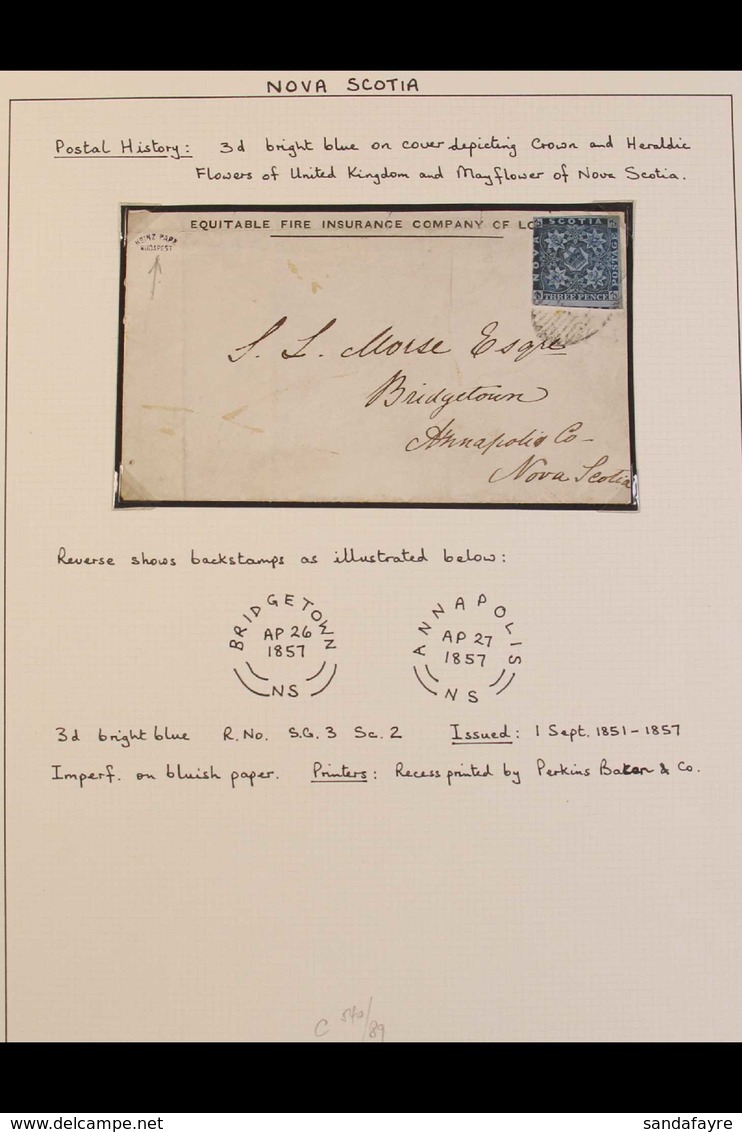 NOVA SCOTIA
Postal History: 3d bright blue on cover depicting Crown and Heraldic
Flowers of United Kingdom and Mayflower of Nova Scotia.
EQUITABLE FIRE INSURANCE COMPANY OF LO
HEINZ PAPP
BUDAPEST
NOVA SCOTIA POSTAGE
THREE PENCE
S. L. Morse Esqre
Bridgetown
Annapolis Co-
Nova Scotia
Reverse shows backstamps as illustrated below:
BRIDGETOWN
AP 26
1857
NS
ANNAPOLIS
AP 27
1857
NS
3d bright blue R.No. S.G. 3 Sc. 2 Issued: 1 Sept. 1851-1857
Imperf. on bluish paper. Printers: Recess printed by Perkins Bacon & Co.
C 540/89
delcampe.net
sandafayre